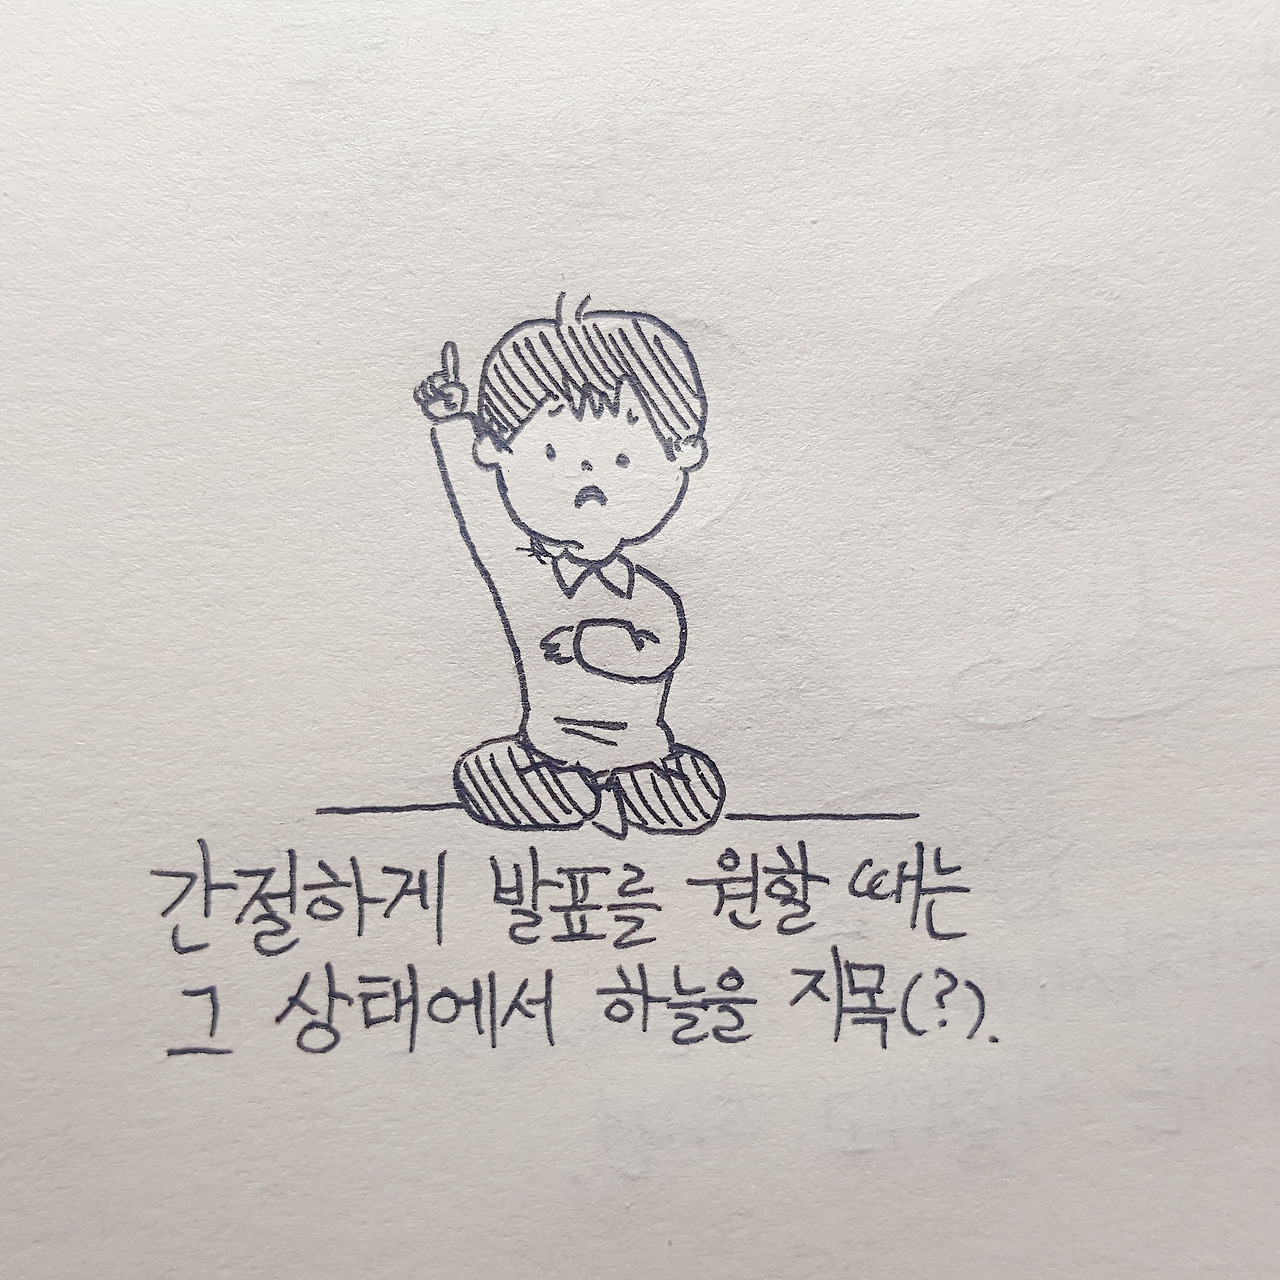 간절하게 발표를 원할 때는
그 상태에서 하늘을 지목(?).